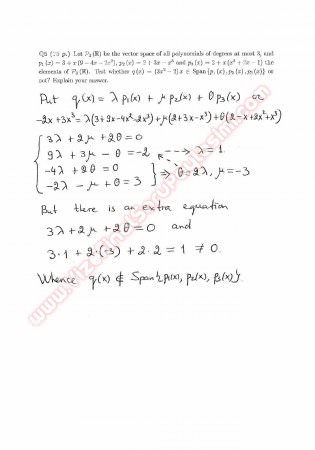 Q5 (15 p.) Let P₃(R) be the vector space of all polynomials of degrees at most 3, and
p₁(x) = 3 + x(9 − 4x − 2x²), p₂(x) = 2 + 3x − x³ and p₃(x) = 2 + x(x² + 2x − 1) the
elements of P₃(R). Test whether q(x) = (3x² − 2)x ∈ Span{p₁(x), p₂(x), p₃(x)} or
not? Explain your answer.
Put q(x) = λ p₁(x) + μ p₂(x) + θ p₃(x) or
-2x+3x³ = λ(3+9x-4x²-2x³)+μ(2+3x-x³)+θ(2-x+2x²+x³)
3λ + 2μ + 2θ = 0
9λ + 3μ − θ = -2 ⇢ λ = 1
-4λ + 2θ = 0
-2λ − μ + θ = 3 ⇒ θ=2λ, μ=-3
But there is an extra equation
3λ + 2μ + 2θ = 0 and
3·1 + 2·(-3) + 2·2 = 1 ≠ 0.
Whence q(x) ∉ Span{p₁(x), p₂(x), p₃(x)}.